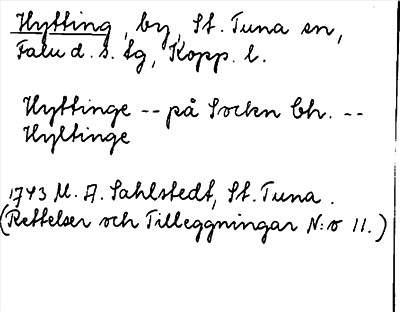 Hytting, by, St. Tuna sn,
Falu d. s. tg, Kopp. l.
Hyttinge -- på Sockn bh. --
Hyltinge
1743 M. A. Sahlstedt, St. Tuna.
(Rettelser och Tilleggningar N:o 11.)